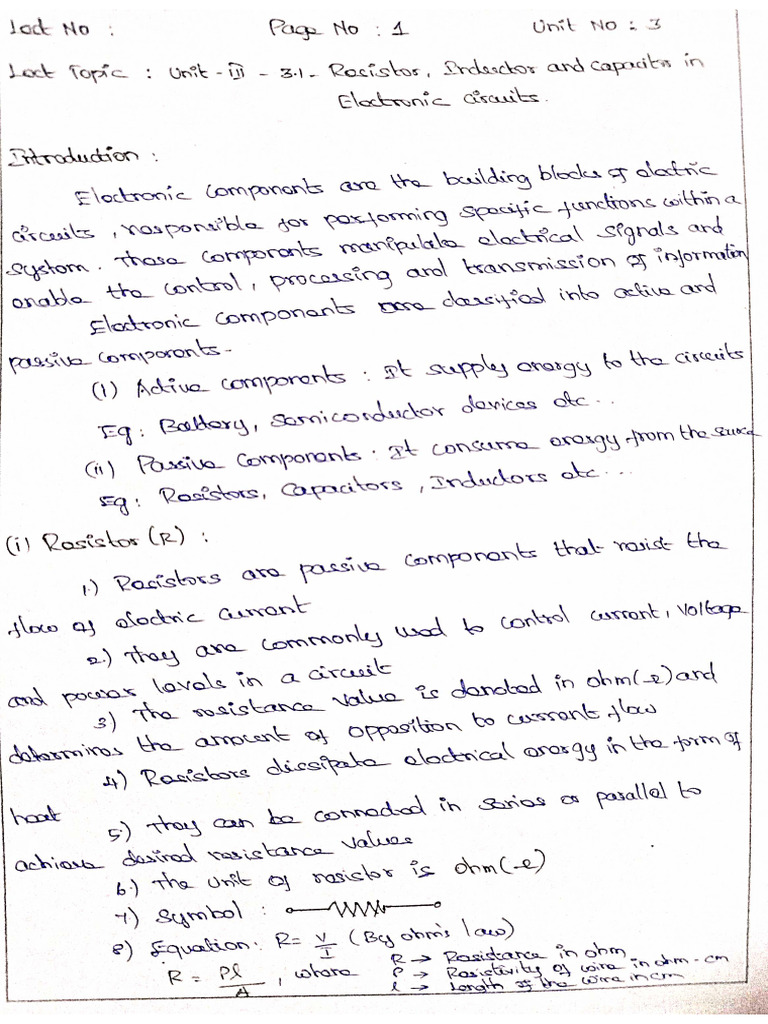 Lect No :
Page No : 1
Unit No : 3
Lect Topic : Unit - III - 3.1 - Resistor, Inductor and capacitor in
Electronic circuits.
Introduction :
Electronic components are the building blocks of electric
circuits, responsible for performing specific functions within a
system. These components manipulate electrical signals and
enable the control, processing and transmission of information
Electronic components are classified into active and
passive components.
(i) Active components : It supply energy to the circuits
Eg: Battery, Semiconductor devices etc...
(ii) Passive components : It consume energy from the source
Eg: Resistors, Capacitors, Inductors etc...
(i) Resistor (R) :
1.) Resistors are passive components that resist the
flow of electric current
2.) They are commonly used to control current, voltage
and power levels in a circuit
3) The resistance value is denoted in ohm(Ω) and
determines the amount of opposition to current flow
4) Resistors dissipate electrical energy in the form of
heat
5) They can be connected in series or parallel to
achieve desired resistance values
6.) The unit of resistor is ohm(Ω)
7) Symbol :
8) Equation: R = V/I (By ohm's law)
R = ρl/A , where R → Resistance in ohm
ρ → Resistivity of wire in ohm-cm
l → Length of the wire in cm